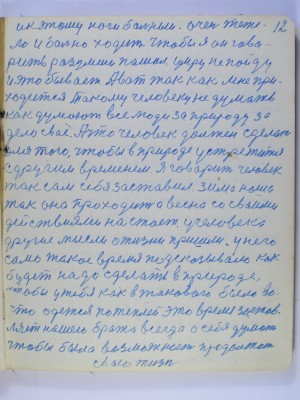 12
и к этому ноги больны. очень тяже-
ло и больно ходить чтобы я он гово-
рить разумши пошол умру не пойду
и это бывает А вот так как мне при-
ходится такому человеку не думать
как думают все люди за природу за
дело своё. А что человек должен сделать
для того, чтобы в природе устретится
с другим временем. Я говорит человек
так сам себя заставил. Зима ноша
так она проходит а весна со своими
действиями настаёт, у человека
другие мысли о жизни пришли, у него
само такое время подсказывало как
будет надо сделать в природе,
чтобы у тебя как в такового было во-
что одется потеплей Это время застав-
лят нашего брата всегда о себя думать
чтобы была возможность продолжат
свою жизн